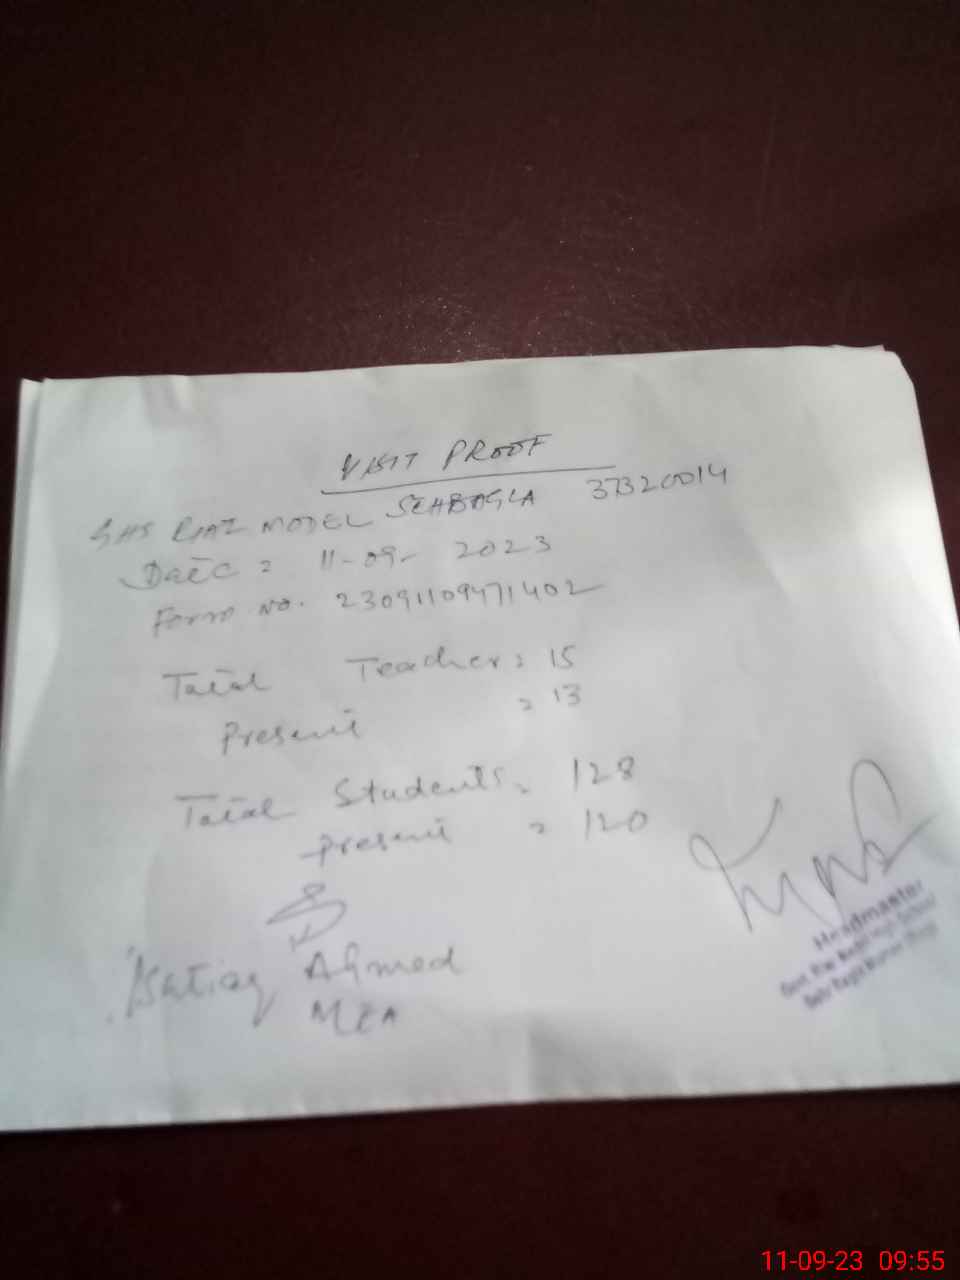 VISIT PROOF
GHS RIAZ MODEL SEHBAGLA 37320014
Date : 11-09-2023
Form No. 23091109471402
Total Teacher = 15
Present = 13
Total Students = 128
Present = 120
Ishtiaq Ahmed
MEA
Headmaster
11-09-23 09:55